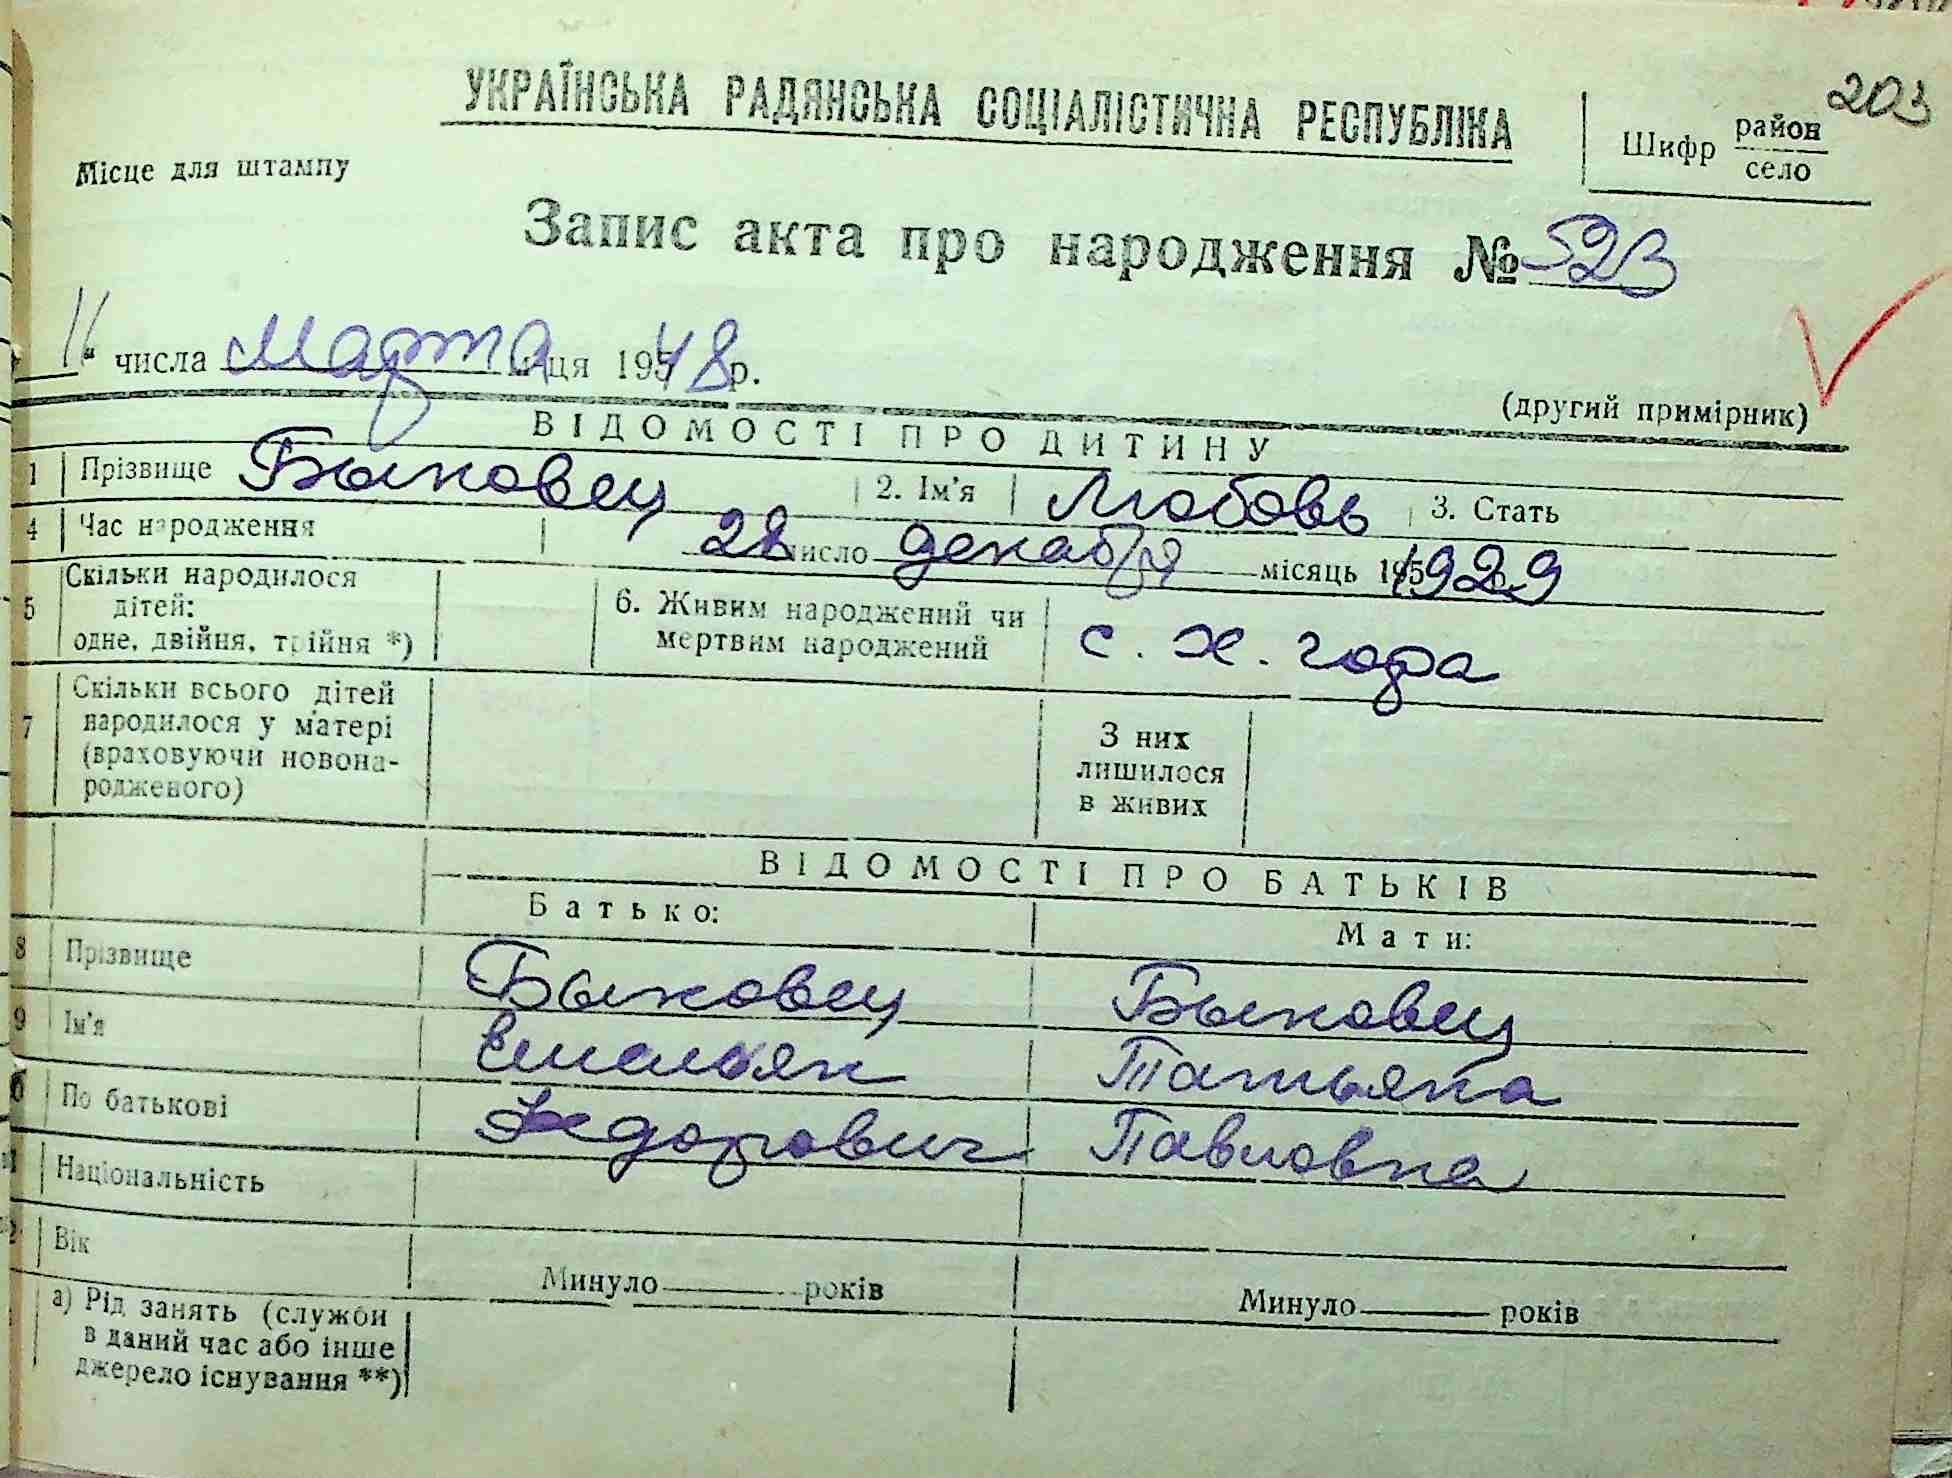 203
УКРАЇНСЬКА РАДЯНСЬКА СОЦІАЛІСТИЧНА РЕСПУБЛІКА
Шифр район
село
Місце для штампу
Запис акта про народження № 523
11 числа Марта м-ця 1948 р.
(другий примірник)
ВІДОМОСТІ ПРО ДИТИНУ
1 Прізвище Быковец 2. Ім'я Любовь 3. Стать
4 Час народження 28 число декабря місяць 1929
5 Скільки народилося дітей: одне, двійня, трійня *) 6. Живим народжений чи мертвим народжений с. х. гора
7 Скільки всього дітей народилося у матері (враховуючи новонародженого) З них лишилося в живих
ВІДОМОСТІ ПРО БАТЬКІВ
Батько: Мати:
8 Прізвище Быковец Быковец
9 Ім'я Емельян Татьяна
По батькові Федорович Павловна
Національність
Вік Минуло років Минуло років
а) Рід занять (служби в даний час або інше джерело існування **)